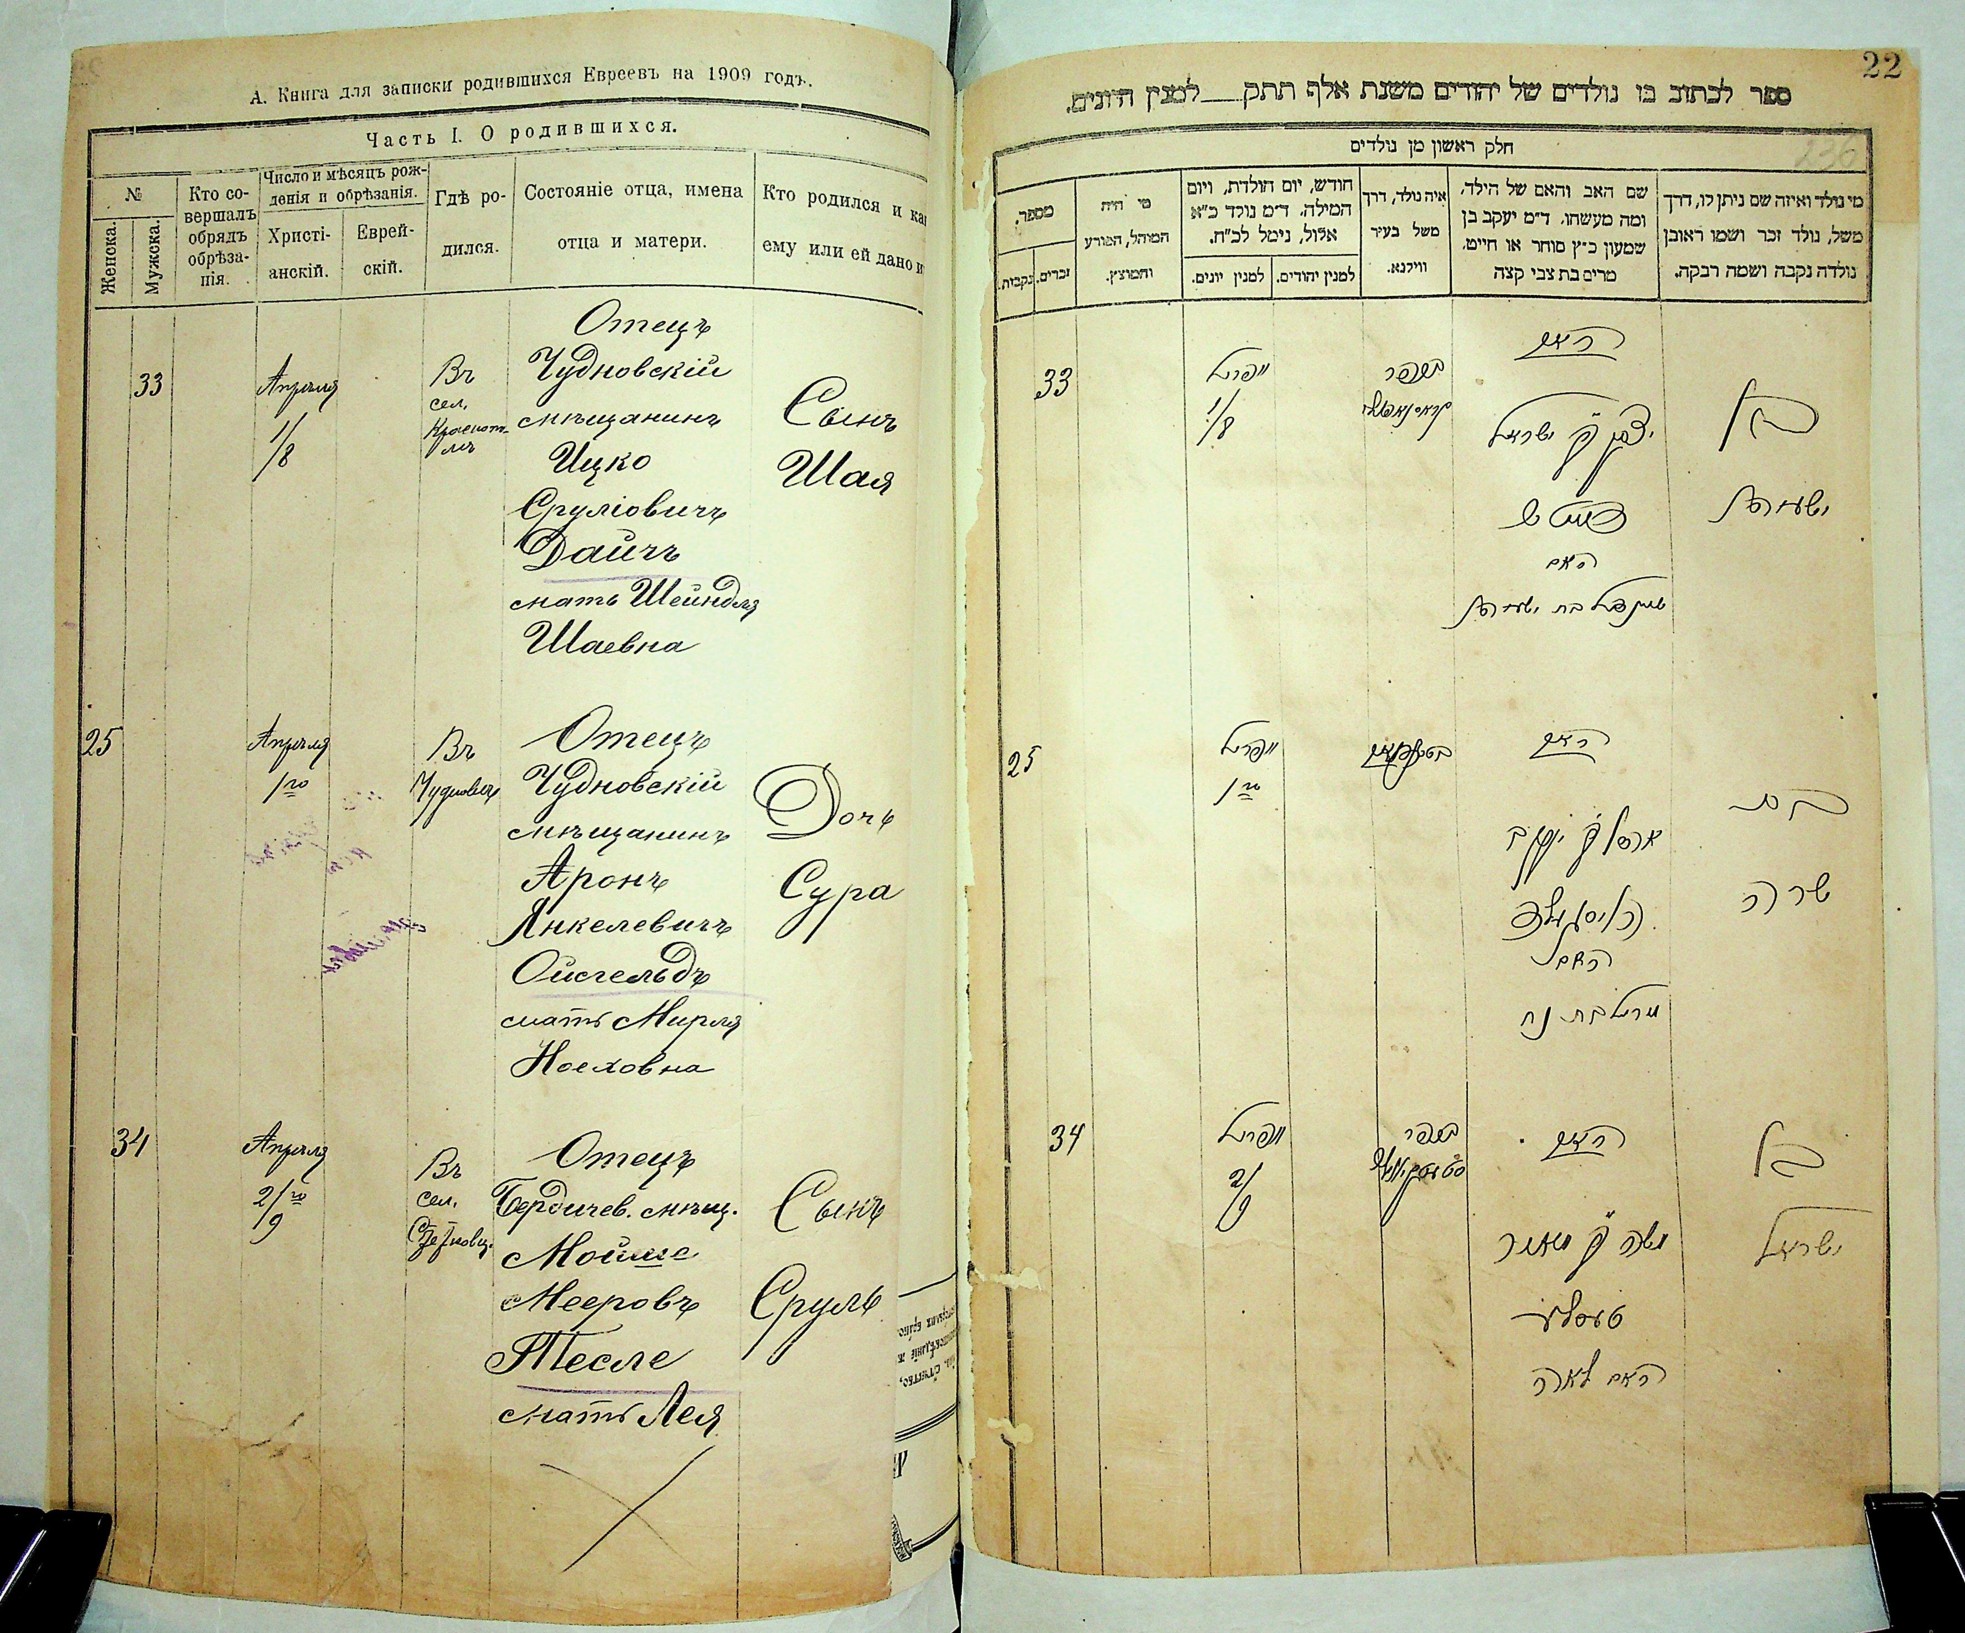 А. Книга для записки родившихся Евреевъ на 1909 годъ.
Часть I. О родившихся.
№
Женска.
Мужска.
Кто со-
вершалъ
обрядъ
обрѣза-
нія.
Число и мѣсяцъ рож-
денія и обрѣзанія.
Христі-
анскій.
Еврей-
скій.
Гдѣ ро-
дился.
Состояніе отца, имена
отца и матери.
Кто родился и ка
ему или ей дано и
33
Апрѣля
1/8
Въ
сел.
Отецъ
Чудновскій
мѣщанинъ
Ицко
Сруліовичъ
Дайчъ
мать Шейндля
Шаевна
Сынъ
Шая
25
Апрѣля
1го
Въ
Чудновѣ
Отецъ
Чудновскій
мѣщанинъ
Аронъ
Янкелевичъ
Ойсгельдъ
мать Мирля
Ноеховна
Дочь
Сура
34
Апрѣля
2/го
9
Въ
сел.
Отецъ
Бердичев. мѣщ.
Мойше
Мееровъ
Тесле
мать Лея
Сынъ
Сруль
22
236
ספר לכתוב בו נולדים של יהודים משנת אלף תתק למנין היונים.
חלק ראשון מן נולדים
מספר.
נקבות.
זכרים.
מי היה
המוהל, הפורע
והמוצץ.
חודש, יום הולדת, ויום
המילה. ד״מ נולד כ״א
אלול, נימל לכ״ח.
למנין יונים.
למנין יהודים.
איה נולד, דרך
משל בעיר
ווילנא.
שם האב והאם של הילד,
ומה מעשהו. ד״מ יעקב בן
שמעון כ״ץ סוחר או חייט,
מרים בת צבי קצה
מי נולד ואיזה שם ניתן לו, דרך
משל, נולד זכר ושמו ראובן
נולדה נקבה ושמה רבקה.
33
אפריל
1/8
בכפר
האב
יצחק בן ישראל
דייטש
האם
שיינדיל בת ישעיהו
בן
ישעיהו
25
אפריל
1го
האב
אהרן בן יעקב
האם
מירל בת נח
בת
שרה
34
אפריל
2/9
בכפר
האב
משה בן מאיר
טעסלע
האם לאה
בן
ישראל